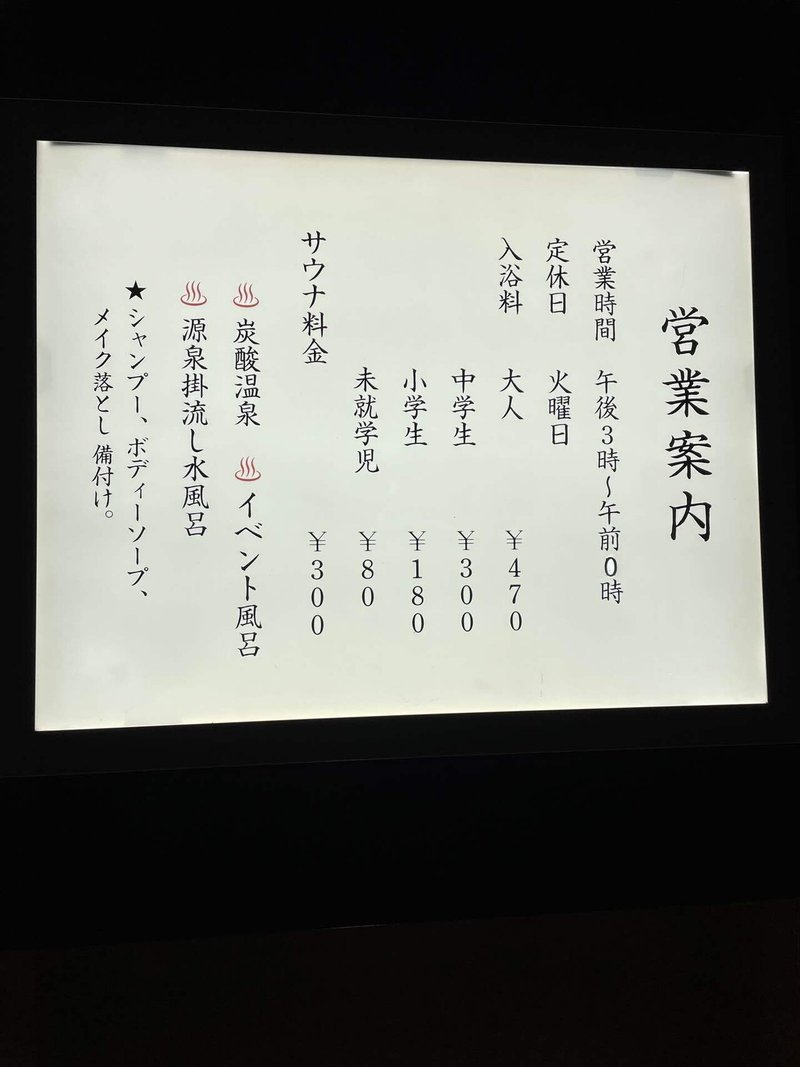 営業案内
営業時間 午後3時～午前0時
定休日 火曜日
入浴料 大人 ￥470
中学生 ￥300
小学生 ￥180
未就学児 ￥80
サウナ料金 ￥300
♨ 炭酸温泉 ♨ イベント風呂
♨ 源泉掛流し水風呂
★シャンプー、ボディーソープ、
メイク落とし 備付け。